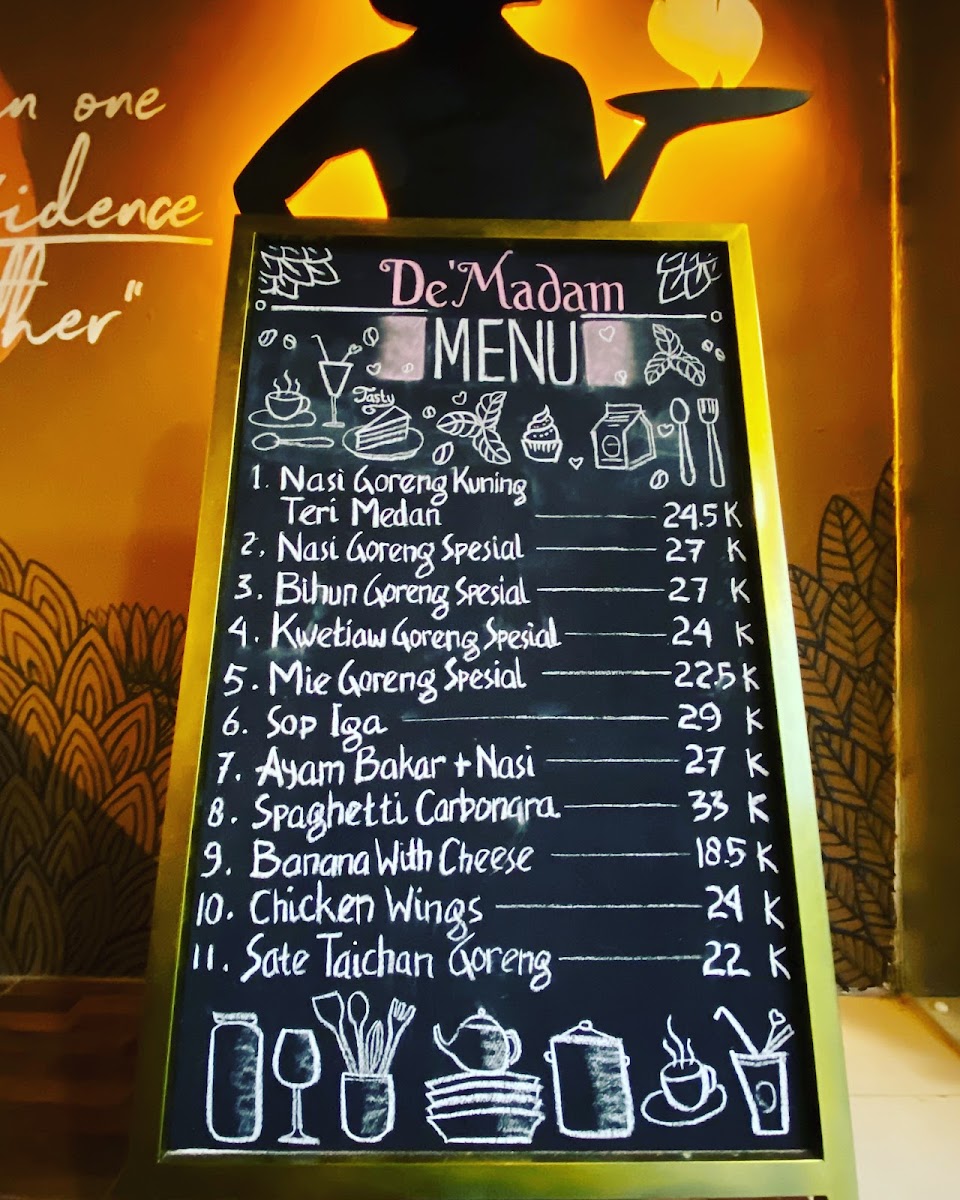 one
ther"
De'Madam
MENU
Tasty
1. Nasi Goreng Kuning
Teri Medan 24.5 K
2. Nasi Goreng Spesial 27 K
3. Bihun Goreng Spesial 27 K
4. Kwetiaw Goreng Spesial 24 K
5. Mie Goreng Spesial 22.5 K
6. Sop Iga 29 K
7. Ayam Bakar + Nasi 27 K
8. Spaghetti Carbonara 33 K
9. Banana With Cheese 18.5 K
10. Chicken Wings 24 K
11. Sate Taichan Goreng 22 K